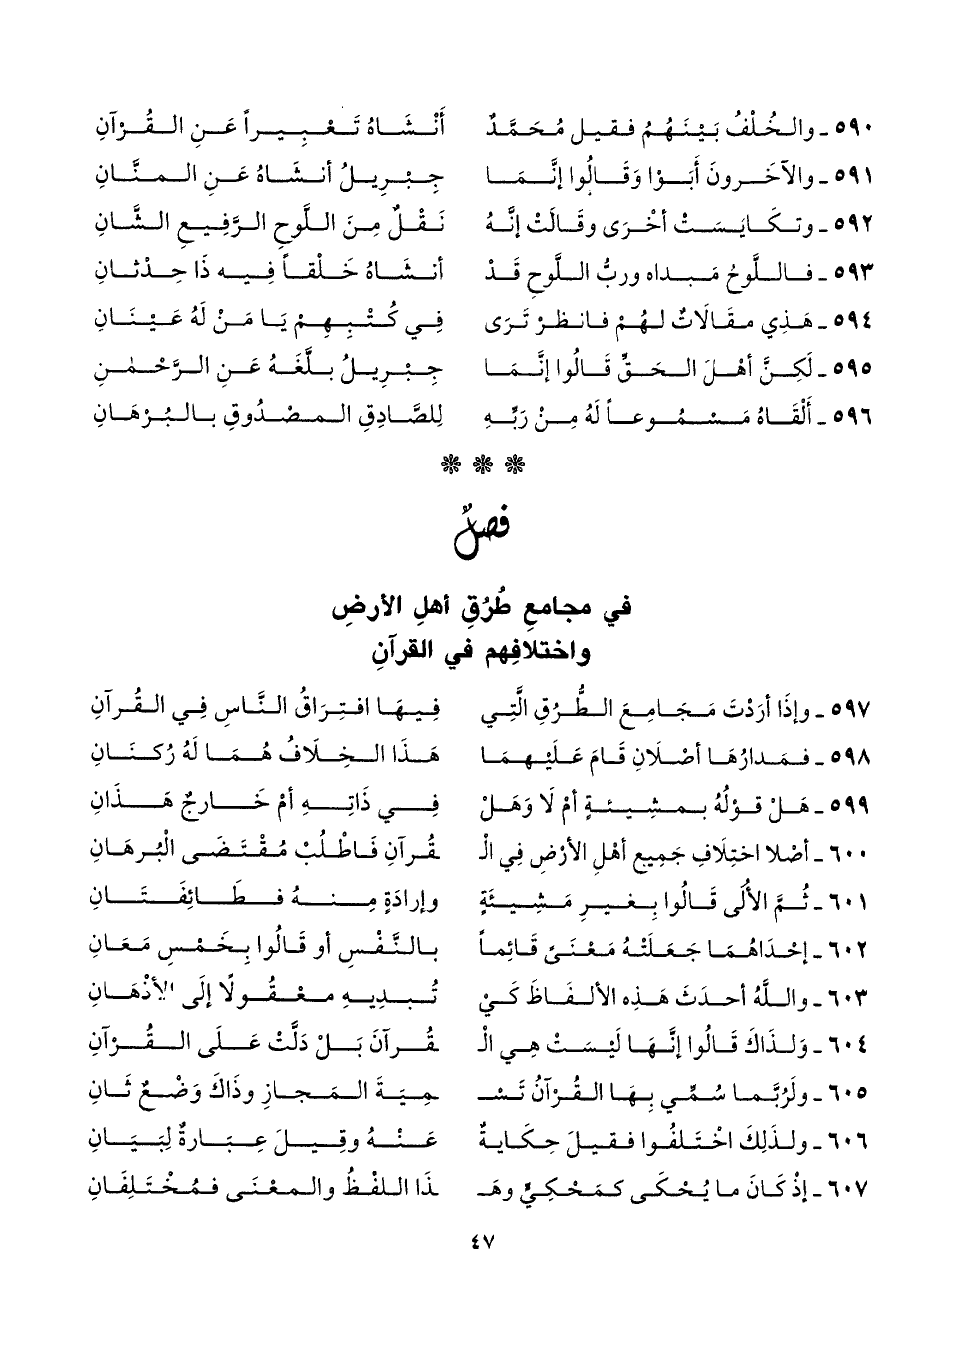 ٥٩٠ - والخُلْفُ بَيْنَهُمْ فقيل مُحَمَّدٌ أَنْشَاهُ تَعْبِيراً عَنِ القُرْآنِ
٥٩١ - والآخَرونَ أَبَوْا وَقَالُوا إنَّمَا جِبْرِيلُ أنشَاهُ عَنِ المنَّانِ
٥٩٢ - وتكَايَسَتْ أخْرَى وقَالَتْ إنَّهُ نَقْلٌ مِنَ اللَّوحِ الرَّفِيعِ الشَّانِ
٥٩٣ - فاللَّوحُ مَبداه وربُّ اللَّوحِ قَدْ أنشَاهُ خَلْقاً فِيهِ ذَا حِدْثَانِ
٥٩٤ - هَذِي مقَالَاتٌ لهُمْ فَانظرْ تَرَى فِي كُتْبِهِمْ يَا مَنْ لَهُ عَيْنَانِ
٥٩٥ - لَكِنَّ أهْلَ الحَقِّ قَالُوا إنَّمَا جِبْرِيلُ بلَّغَهُ عَنِ الرَّحْمنِ
٥٩٦ - ألْقَاهُ مَسْمُوعاً لَهُ مِنْ رَبِّهِ لِلصَّادِقِ المصْدُوقِ بالبُرْهَانِ
فصلٌ
في مجامعِ طُرُقِ أهلِ الأرضِ
واختلافِهم في القرآنِ
٥٩٧ - وإذَا أرَدْتَ مَجَامِعَ الطُّرُقِ الَّتِي فِيهَا افتِرَاقُ النَّاسِ فِي القُرْآنِ
٥٩٨ - فمَدارُهَا أصْلَانِ قَامَ عَلَيْهِمَا هَذَا الخِلَافُ هُمَا لَهُ رُكنَانِ
٥٩٩ - هَلْ قولُهُ بمشِيئةٍ أمْ لَا وَهَلْ فِي ذَاتِهِ أمْ خَارِجٌ هَذَانِ
٦٠٠ - أصْلَا اختِلَافِ جَمِيعِ أهْلِ الأرْضِ فِي الْـ ـقُرآنِ فَاطْلُبْ مُقْتَضَى البُرهَانِ
٦٠١ - ثُمَّ الأُلَى قَالُوا بغيرِ مَشِيئةٍ وإرادَةٍ مِنهُ فطَائِفَتَانِ
٦٠٢ - إحْدَاهُمَا جَعَلتْهُ مَعْنىً قَائِماً بالنَّفْسِ أو قَالُوا بِخَمْسِ مَعَانِ
٦٠٣ - واللَّهُ أحدَثَ هَذِهِ الألفَاظَ كَيْ تُبدِيهِ معْقُولًا إلَى الأذْهَانِ
٦٠٤ - وَلذَاكَ قَالُوا إنَّهَا لَيْسَتْ هِيَ الْـ ـقُرآنَ بَلْ دَلَّتْ عَلَى القُرْآنِ
٦٠٥ - ولَرُبَّما سُمِّي بِهَا القُرْآنُ تَسْـ ـمِيَةَ المَجازِ وذَاكَ وَضْعٌ ثَانِ
٦٠٦ - ولذَلِكَ اخْتَلَفُوا فقيلَ حِكَايةٌ عَنْهُ وقِيلَ عِبَارةٌ لِبَيَانِ
٦٠٧ - إذْ كَانَ ما يُحْكَى كمَحْكِيٍّ وَهَـ ـذَا اللفْظُ والمعْنَى فمُخْتَلِفَانِ
٤٧